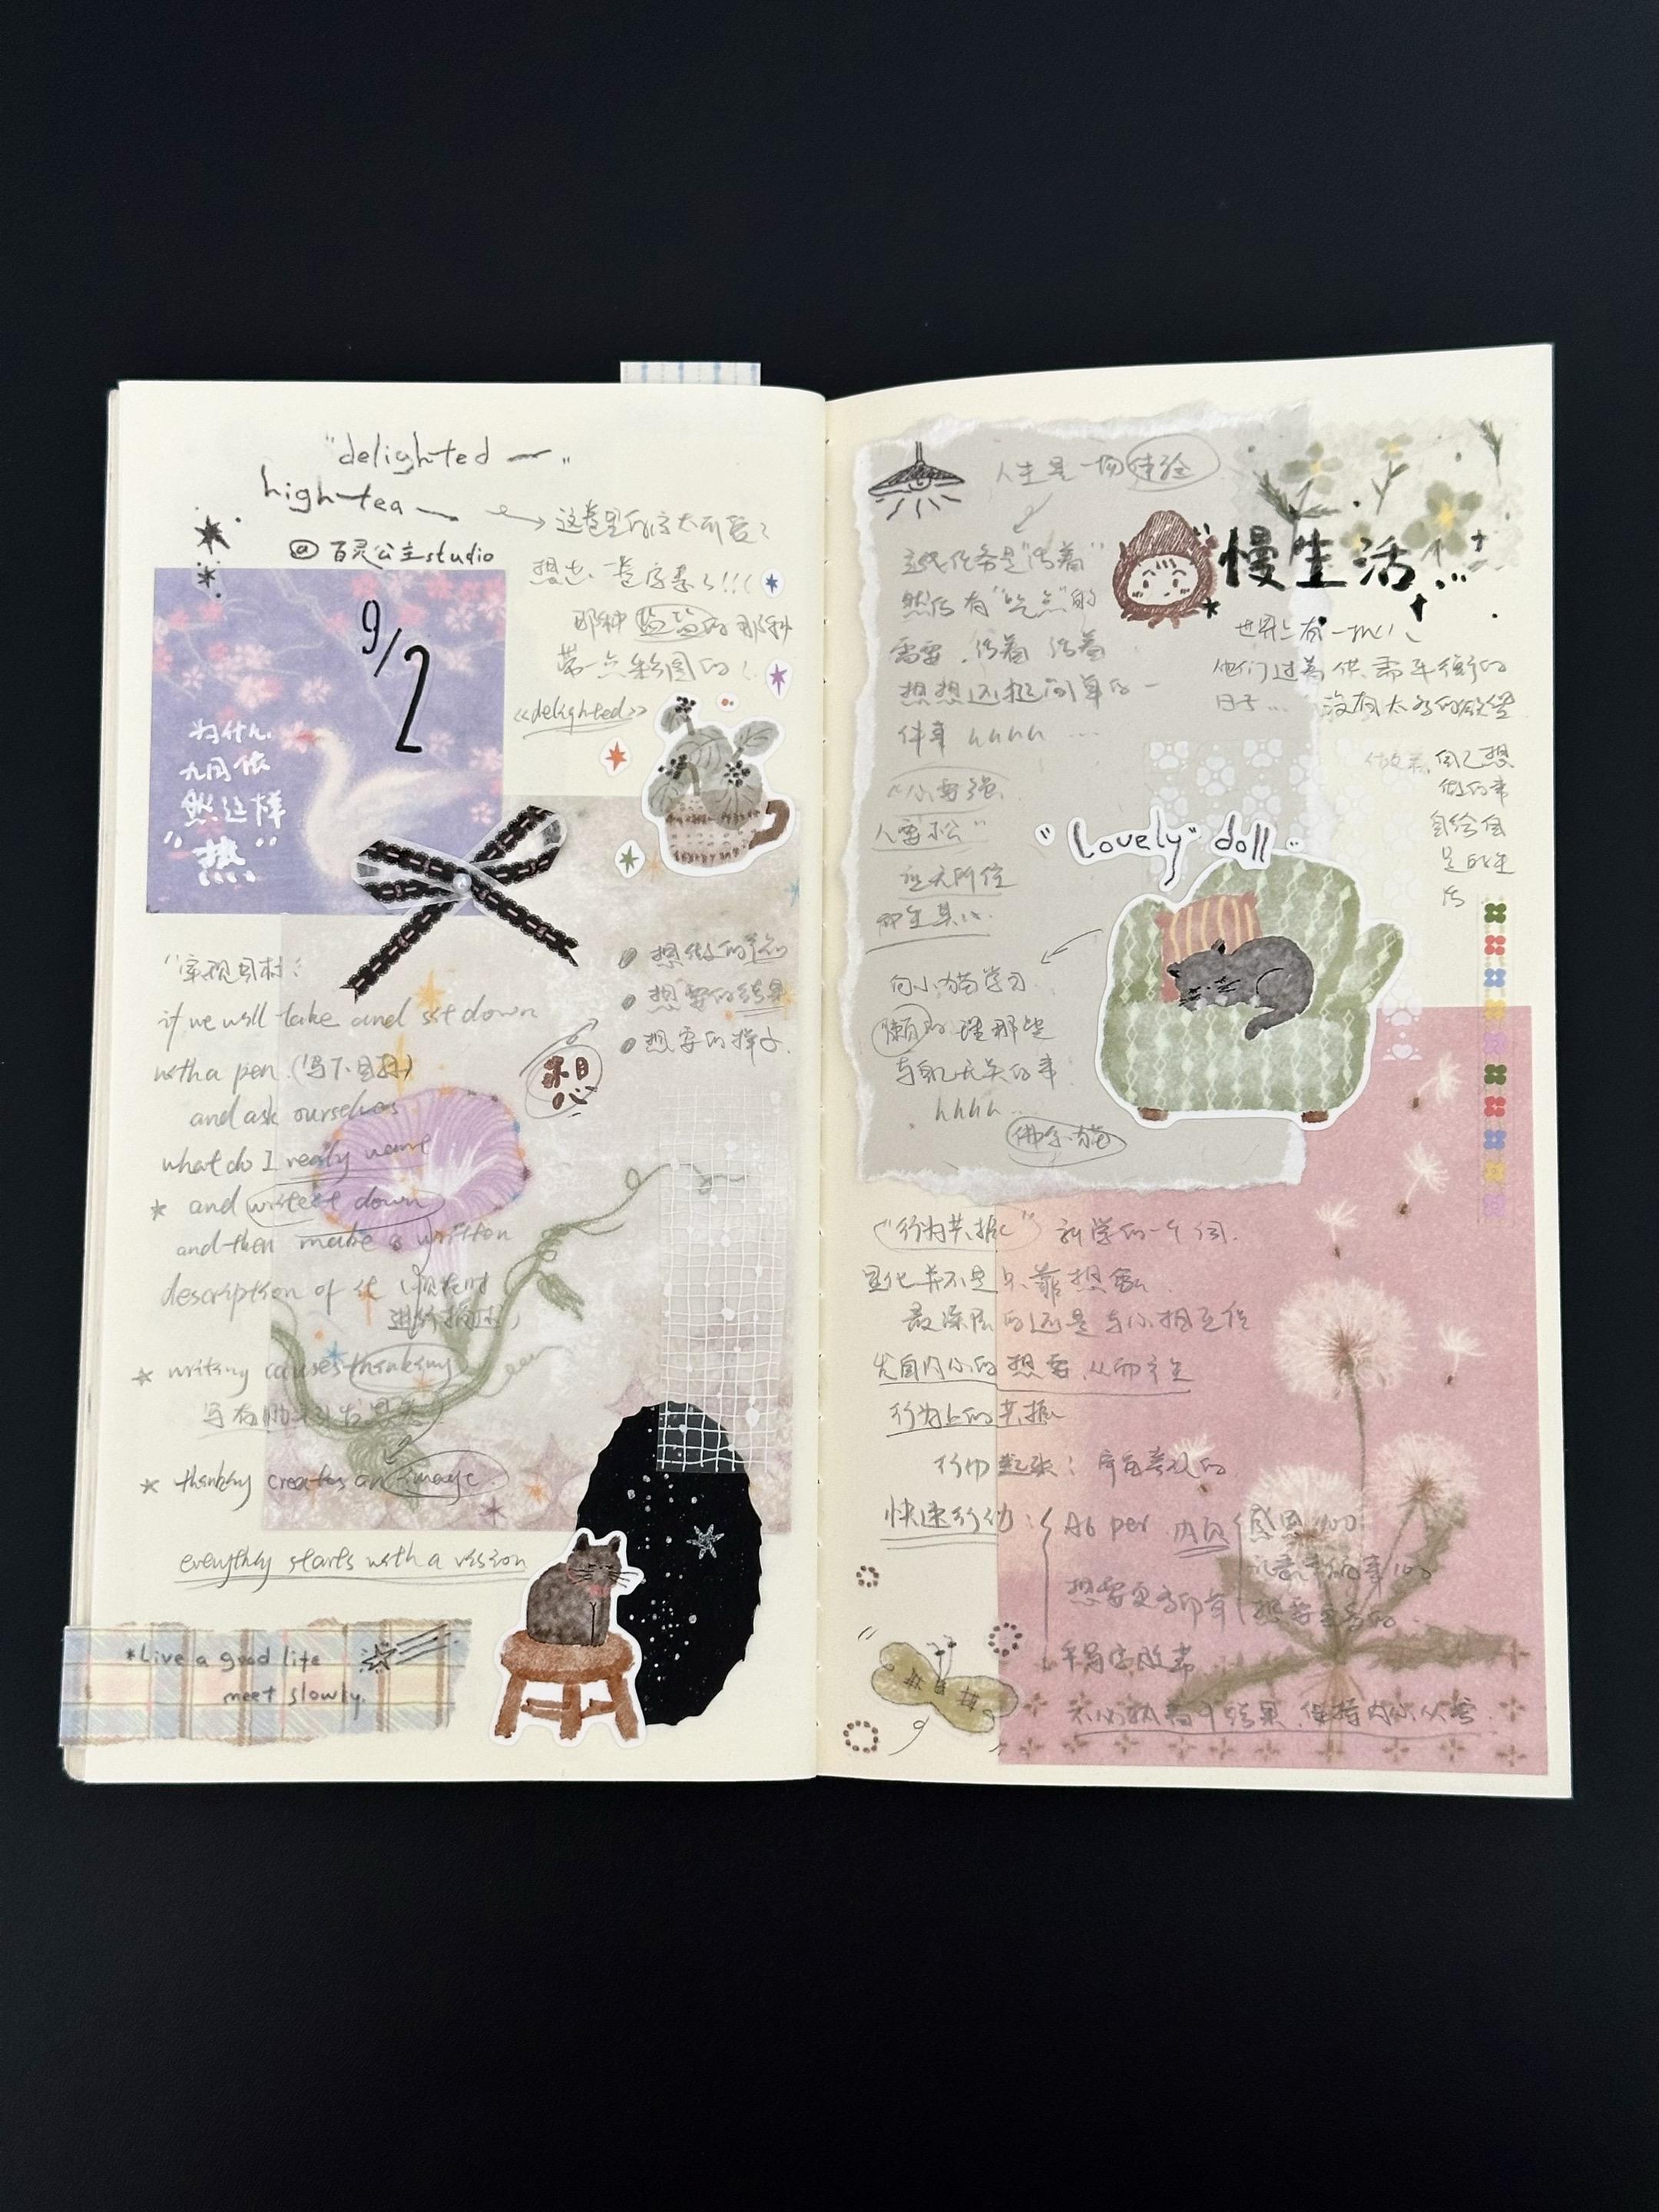 "delighted —"
high-tea —
@ 百灵公主studio
这卷里的字太可爱了
想出一卷字素了!!!(
那种
的那种
带一点彩图的
<<delighted>>
9/2
为什么
九月依
然这样
"热"
....
"实现目标:
if we will take and sit down
with a pen (写下目标)
and ask ourselves
what do I really want
* and write it down
and then make a written
description of it (
进行描述)
* writing causes thinking
写
* thinking creates an image.
everything starts with a vision
想做的
想要的结果
想要的样子
想
*Live a good life
meet slowly.
人生是一场体验
主线任务是"活着"
然后有"吃点"的
需要,活着 活着
想想还挺简单的一
件事 hhhh ...
"心要强
人要松"
应无所住
而生其心.
向小猫学习
懒的理那些
与我无关的事
hhhh..
佛系猫
慢生活...
世界上有一批人
他们过着供需平衡的
日子... 没有太多的欲望
做着自己想
做的事
自给自
足的生
活
"Lovely" doll..
("行为共振") 新学的一个词.
显化并不是只靠想象
最深层的还是与心相互作
发自内心的想要,从而产生
行为上的共振
快速行动: A6 per 内页
感恩100
想要更多的
不必执着于结果,保持内心从容.